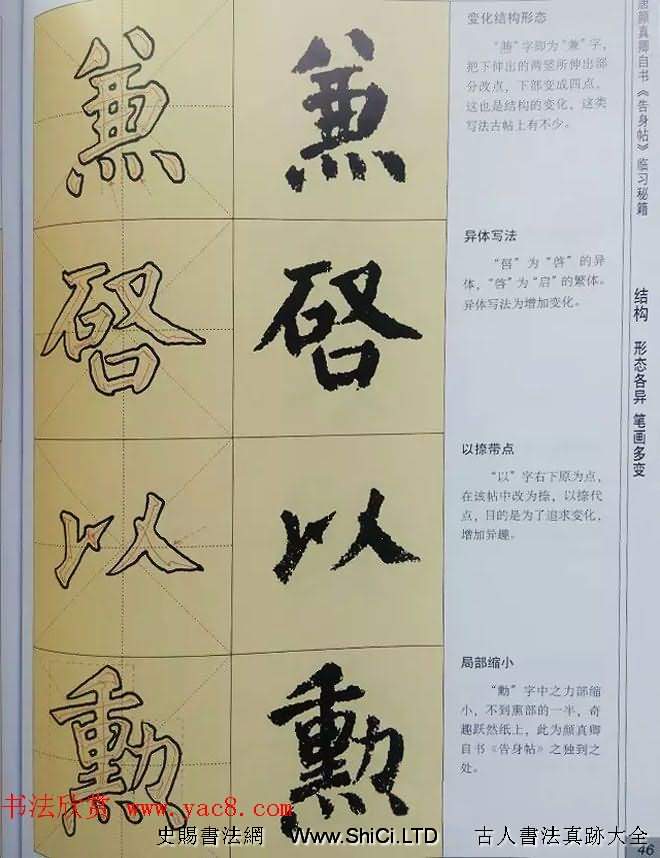 兼
变化结构形态
字即为“兼”字,
把下伸出的两竖所伸出部
分改点,下部变成四点。
这也是结构的变化,这类
写法古帖上有不少。
啓
异体写法
为“啓”的异
体,“啓”为“启”的繁体。
异体写法为增加变化。
以
以捺带点
“以”字右下原为点,
在该帖中改为捺,以捺代
点,目的是为了追求变化,
增加异趣。
勳
局部缩小
“勳”字中之力部缩
小,不到熏部的一半,奇
趣跃然纸上,此为颜真卿
自书《告身帖》之独到之
处。
唐颜真卿自书《告身帖》临习秘籍
结构 形态各异 笔画多变
书法欣赏 www.yac8.com
史賜書法網 Www.ShiCi.LTD 古人書法真跡大全
46